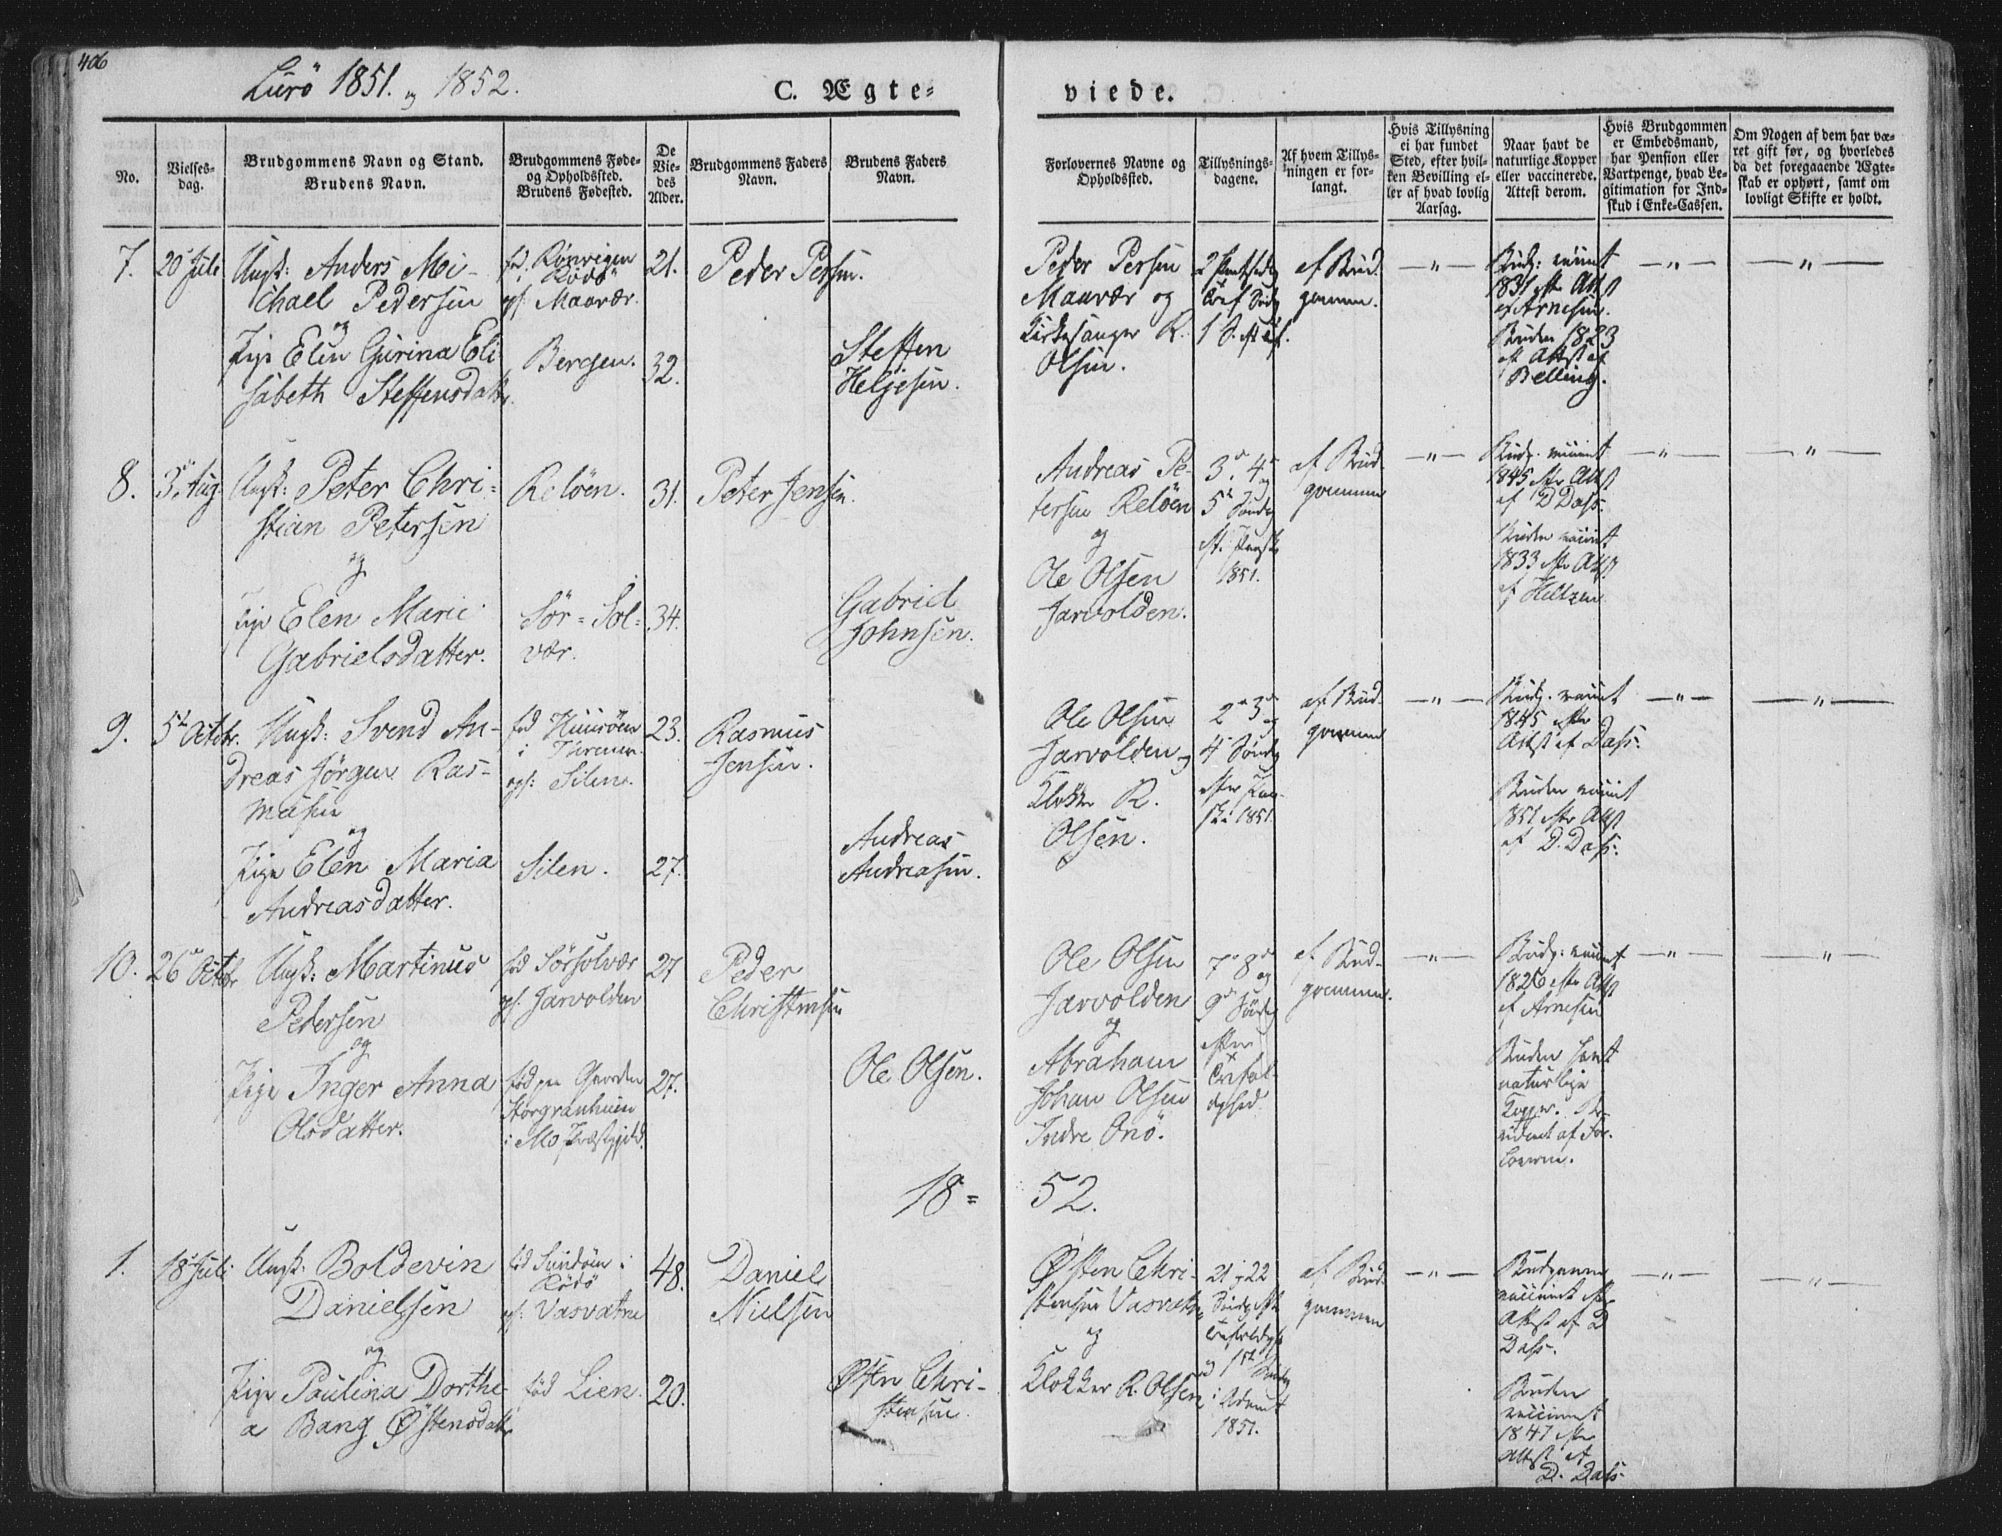 406
Lurö 1851. og 1852.
C. Ægte-
viede.
No.
Vielses-
dag.
Brudgommens Navn og Stand.
Brudens Navn.
Brudgommens Føde-
og Opholdssted.
Brudens Fødested.
De
Vie-
des
Alder.
Brudgommens Faders
Navn.
Brudens Faders
Navn.
Forlovernes Navne og
Opholdssted.
Tillysnings-
dagene.
Af hvem Tillys-
ningen er for-
langt.
Hvis Tillysning
ei har fundet
Sted, efter hvil-
ken Bevilling el-
ler af hvad lovlig
Aarsag.
Naar havt de
naturlige Kopper
eller vaccinerede.
Attest derom.
Hvis Brudgommen
er Embedsmand,
har Pension eller
Vartpenge, hvad Le-
gitimation for Ind-
skud i Enke-Cassen.
Om Nogen af dem har væ-
ret gift før, og hvorledes
da det foregaaende Ægte-
skab er ophørt, samt om
lovligt Skifte er holdt.
7.
20 Juli
Ungk: Anders Mi-
chael Pedersen
og
Pige Elen Gurina Eli
sabeth Steffensdatter
fød
Rödö
Maavær.
Bergen.
21.
32.
Peder Persen.
Steffen
Helgesen.
Peder Persen
Maavær og
Kirkesanger R.
Olsen.
af Brud
gommen.
Brudg: vaccint
1831 eftr Attst
af Arnesen.
Bruden 1823
eft Attst af
Belling.
8.
3 Aug
Ungk: Peter Chri-
stian Petersen
og
Pige Elen Marie
Gabrielsdatter.
Relöen.
Sör-Sol-
vær.
31.
34.
Peter Jensen.
Gabriel
Johnsen.
Andreas Pe-
tersen Relöen
og
Ole Olsen
Jarvolden.
3. 4 og
5 Sönd
eft. Paaske
1851.
af Brud
gommen
Brudg. vaccint
1845 eftr Attst
af D Dass.
Bruden vaccint
1833 eftr Attst
af Heltzen
9.
5t Octobr.
Ungk: Svend An-
dreas Jörgen Ras-
musen
og
Pige Elen Maria
Andreasdatter.
fød
i
Silen.
Silen.
23.
27.
Rasmus
Jensen.
Andreas
Andreasen.
Ole Olsen
Jarvolden og
Klokker R.
Olsen.
2 3 og
4 Sönd
efter
1851.
af Brud
gommen
Brudg. vaccint
1845 efter
Attst af Dass.
Bruden vaccint
1851 eftr Attst
af D. Dass.
10.
26 Octobr
Ungk: Martinus
Pedersen
og
Pige Inger Anna
Olsdatter.
fød Sörsolvær
Jarvolden
fød paa Gaarden
Storgranhuien
i Mo Præstegjeld.
27
27.
Peder
Christensen
Ole Olsen.
Ole Olsen
Jarvolden
og
Abraham
Johan Olsen
Indre Onö.
7 8 og
9 Sönd
efter
Trefol-
dghed.
af Brud-
gommen.
Brudg: vaccint
1826 eftr Attst
af Arnesen
Bruden havt
naturlige
Kopper.
af For-
loverne.
18=52.
1.
18 Juli
Ungk: Boldevin
Danielsen
og
Pige Paulina Dorthe-
a Bang Östensdatter
fød Sundöen i
Rödö
Vasvatne
fød Lien.
48.
20.
Daniel
Nielsen
Østen Chri-
stensen.
Østen Chri-
stensen Vasvatne
og
Klokker R. Olsen
21 og 22
Sönd efter
i Advent
1851.
af Brud
gommen
Brudgommen
vaccinert eftr
Attst af D
Dass.
Bruden
vaccineret
1847 eftr
Attst af
D. Dass.